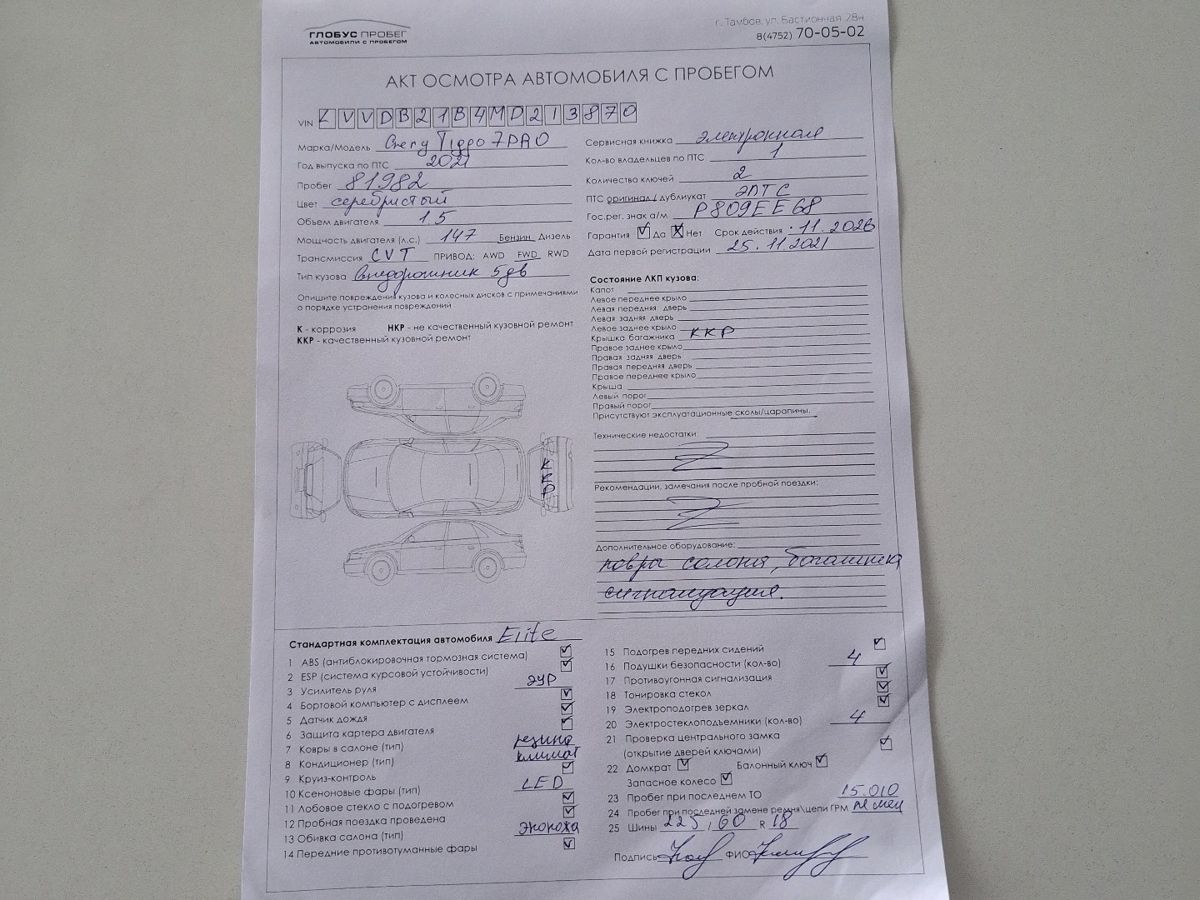 ГЛОБУС ПРОБЕГ
АВТОМОБИЛИ С ПРОБЕГОМ
г. Тамбов, ул. Бастионная, 28н
8(4752) 70-05-02
АКТ ОСМОТРА АВТОМОБИЛЯ С ПРОБЕГОМ
VIN LVVDB21B4MD213870
Марка/Модель Chery Tiggo 7 PRO
Год выпуска по ПТС 2021
Пробег 81982
Цвет серебристый
Объем двигателя 1.5
Мощность двигателя (л.с.) 147 Бензин Дизель
Трансмиссия CVT ПРИВОД: AWD FWD RWD
Тип кузова Внедорожник 5дв
Опишите повреждения кузова и колесных дисков с примечаниями
о порядке устранения повреждений
К - коррозия НКР - не качественный кузовной ремонт
ККР - качественный кузовной ремонт
ККР
Сервисная книжка электронная
Кол-во владельцев по ПТС 1
Количество ключей 2
ПТС оригинал / дубликат ЭПТС
Гос.рег. знак а/м Р809ЕЕ68
Гарантия Да Нет Срок действия .11.2026
Дата первой регистрации 25.11.2021
Состояние ЛКП кузова:
Капот
Левое переднее крыло
Левая передняя дверь
Левая задняя дверь
Левое заднее крыло
Крышка багажника ККР
Правое заднее крыло
Правая задняя дверь
Правая передняя дверь
Правое переднее крыло
Крыша
Левый порог
Правый порог
Присутствуют эксплуатационные сколы/царапины.
Технические недостатки:
Z
Рекомендации, замечания после пробной поездки:
Z
Дополнительное оборудование:
ковры салона, багажника
сигнализация.
Стандартная комплектация автомобиля Elite
1 ABS (антиблокировочная тормозная система)
2 ESP (система курсовой устойчивости)
3 Усилитель руля ЭУР
4 Бортовой компьютер с дисплеем
5 Датчик дождя
6 Защита картера двигателя
7 Ковры в салоне (тип) резина
8 Кондиционер (тип) климат
9 Круиз-контроль
10 Ксеноновые фары (тип) LED
11 Лобовое стекло с подогревом
12 Пробная поездка проведена
13 Обивка салона (тип) экокожа
14 Передние противотуманные фары
15 Подогрев передних сидений
16 Подушки безопасности (кол-во) 4
17 Противоугонная сигнализация
18 Тонировка стекол
19 Электроподогрев зеркал
20 Электростеклоподъемники (кол-во) 4
21 Проверка центрального замка
(открытие дверей ключами)
22 Домкрат Балонный ключ
Запасное колесо
23 Пробег при последнем ТО 15.010
24 Пробег при последней замене ремня\цепи ГРМ
25 Шины 225 / 60 R 18
Подпись ФИО